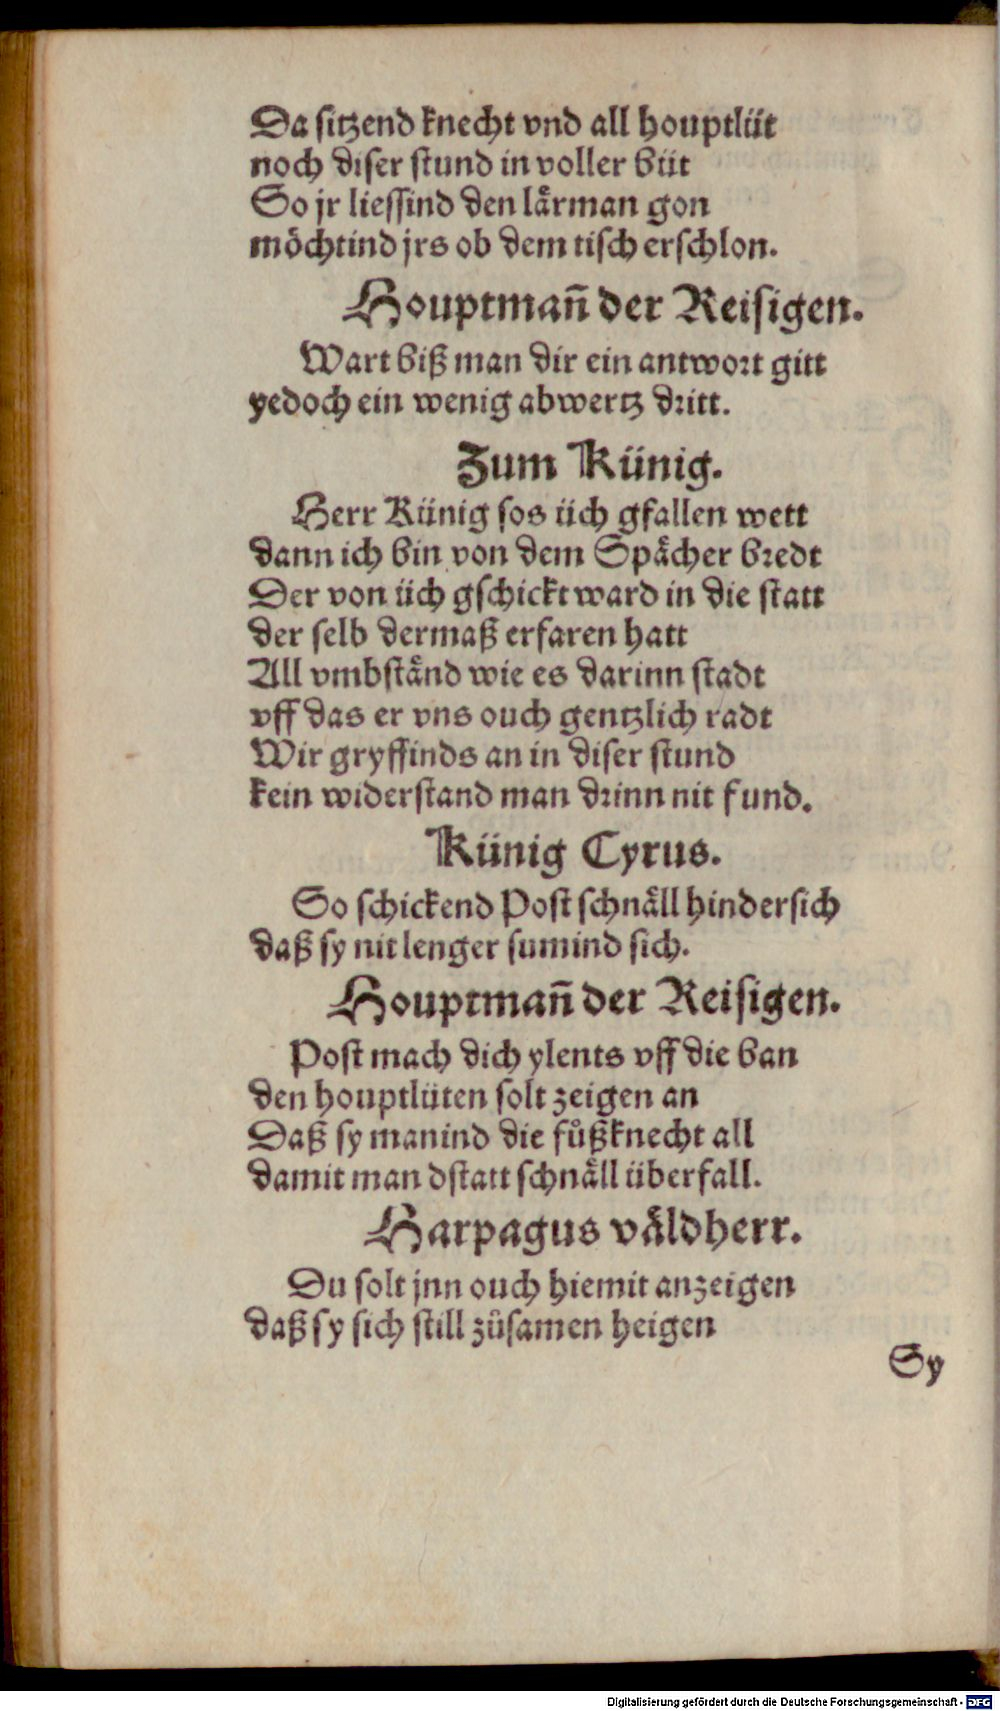 Da sitzend knecht vnd all houptlüt
noch diser stund in voller büt
So jr liessind den lärman gon
möchtind jrs ob dem tisch erschlon.
Houptmañ der Reisigen.
Wart biß man dir ein antwort gitt
yedoch ein wenig abwertz dritt.
Zum Künig.
Herr Künig sos üch gfallen wett
dann ich bin von dem Spächer bredt
Der von üch gschickt ward in die statt
der selb dermaß erfaren hatt
All vmbständ wie es darinn stadt
vff das er vns ouch gentzlich radt
Wir gryffinds an in diser stund
kein widerstand man drinn nit fund.
Künig Cyrus.
So schickend Post schnäll hindersich
daß sy nit lenger sumind sich.
Houptmañ der Reisigen.
Post mach dich ylents vff die ban
den houptlüten solt zeigen an
Daß sy manind die fůßknecht all
damit man dstatt schnäll überfall.
Harpagus väldherr.
Du solt jnn ouch hiemit anzeigen
daß sy sich still zůsamen heigen
Sy
Digitalisierung gefördert durch die Deutsche Forschungsgemeinschaft - DFG